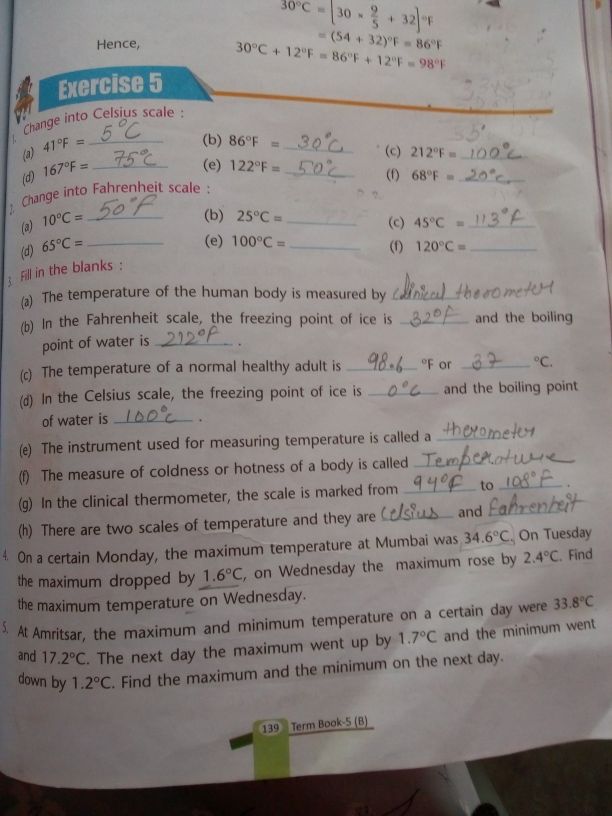 30°C = [30 × 9/5 + 32]°F
= (54 + 32)°F = 86°F
Hence, 30°C + 12°F = 86°F + 12°F = 98°F
Exercise 5
1. Change into Celsius scale :
(a) 41°F = 5°C (b) 86°F = 30°C (c) 212°F = 100°C
(d) 167°F = 75°C (e) 122°F = 50°C (f) 68°F = 20°C
2. Change into Fahrenheit scale :
(a) 10°C = 50°F (b) 25°C = (c) 45°C = 113°F
(d) 65°C = (e) 100°C = (f) 120°C =
3. Fill in the blanks :
(a) The temperature of the human body is measured by clinical thermometer
(b) In the Fahrenheit scale, the freezing point of ice is 32°F and the boiling
point of water is 212°F .
(c) The temperature of a normal healthy adult is 98.6 °F or 37 °C.
(d) In the Celsius scale, the freezing point of ice is 0°C and the boiling point
of water is 100°C .
(e) The instrument used for measuring temperature is called a therometer
(f) The measure of coldness or hotness of a body is called Temperature
(g) In the clinical thermometer, the scale is marked from 94°F to 108°F .
(h) There are two scales of temperature and they are Celsius and Fahrenheit
4. On a certain Monday, the maximum temperature at Mumbai was 34.6°C. On Tuesday
the maximum dropped by 1.6°C, on Wednesday the maximum rose by 2.4°C. Find
the maximum temperature on Wednesday.
5. At Amritsar, the maximum and minimum temperature on a certain day were 33.8°C
and 17.2°C. The next day the maximum went up by 1.7°C and the minimum went
down by 1.2°C. Find the maximum and the minimum on the next day.
139 Term Book-5 (B)